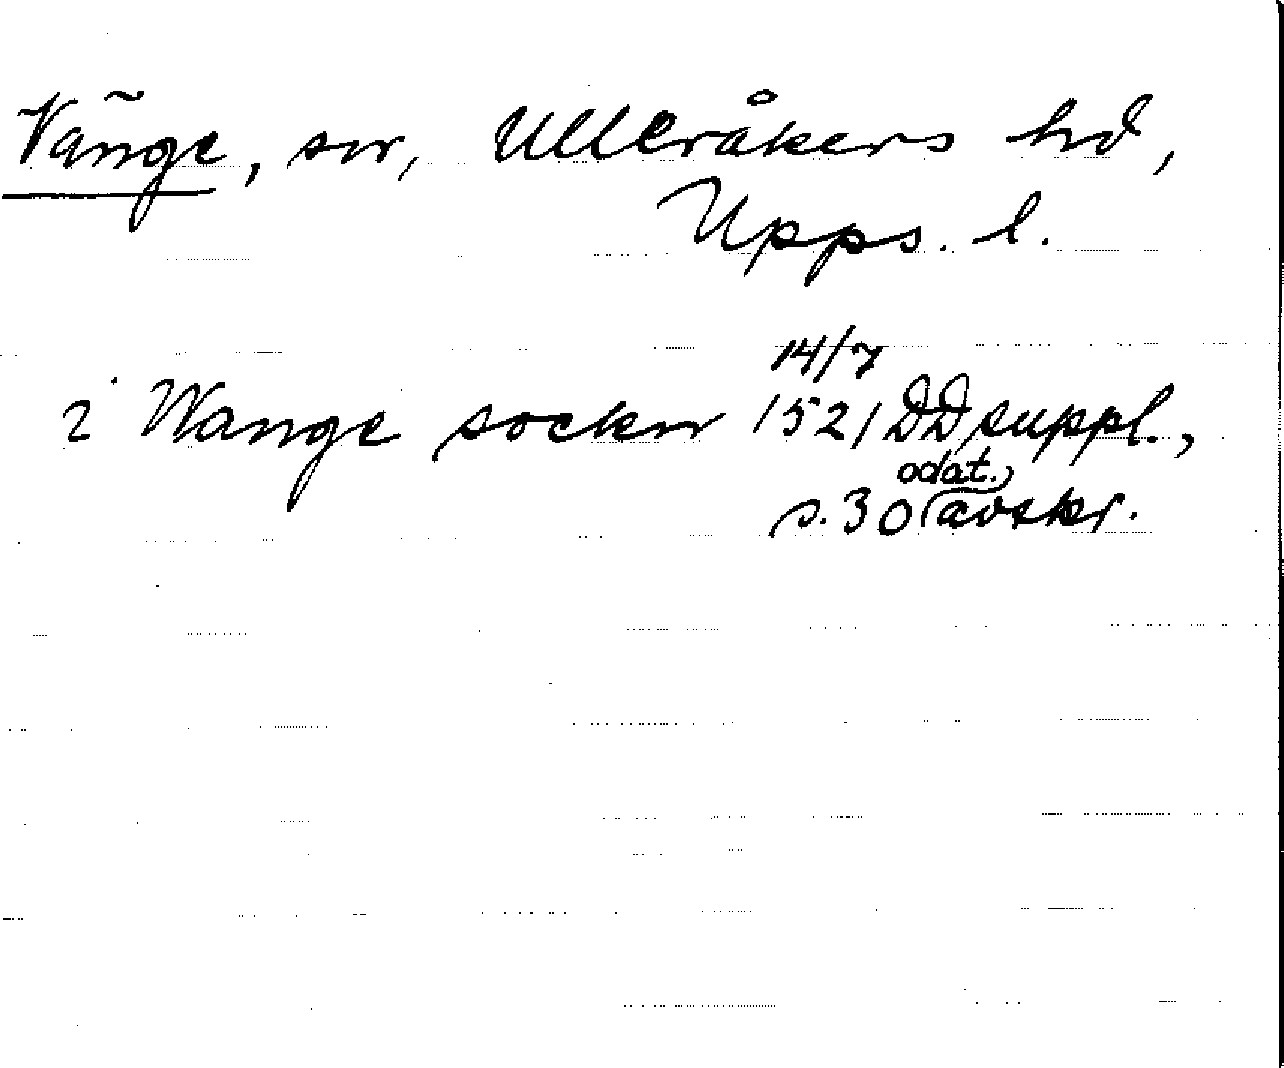 Vänge, sn, Ulleråkers hd,
Upps. l.
i Wange sockn 14/7 1521 DD suppl.,
s. 30 (odat. avskr.